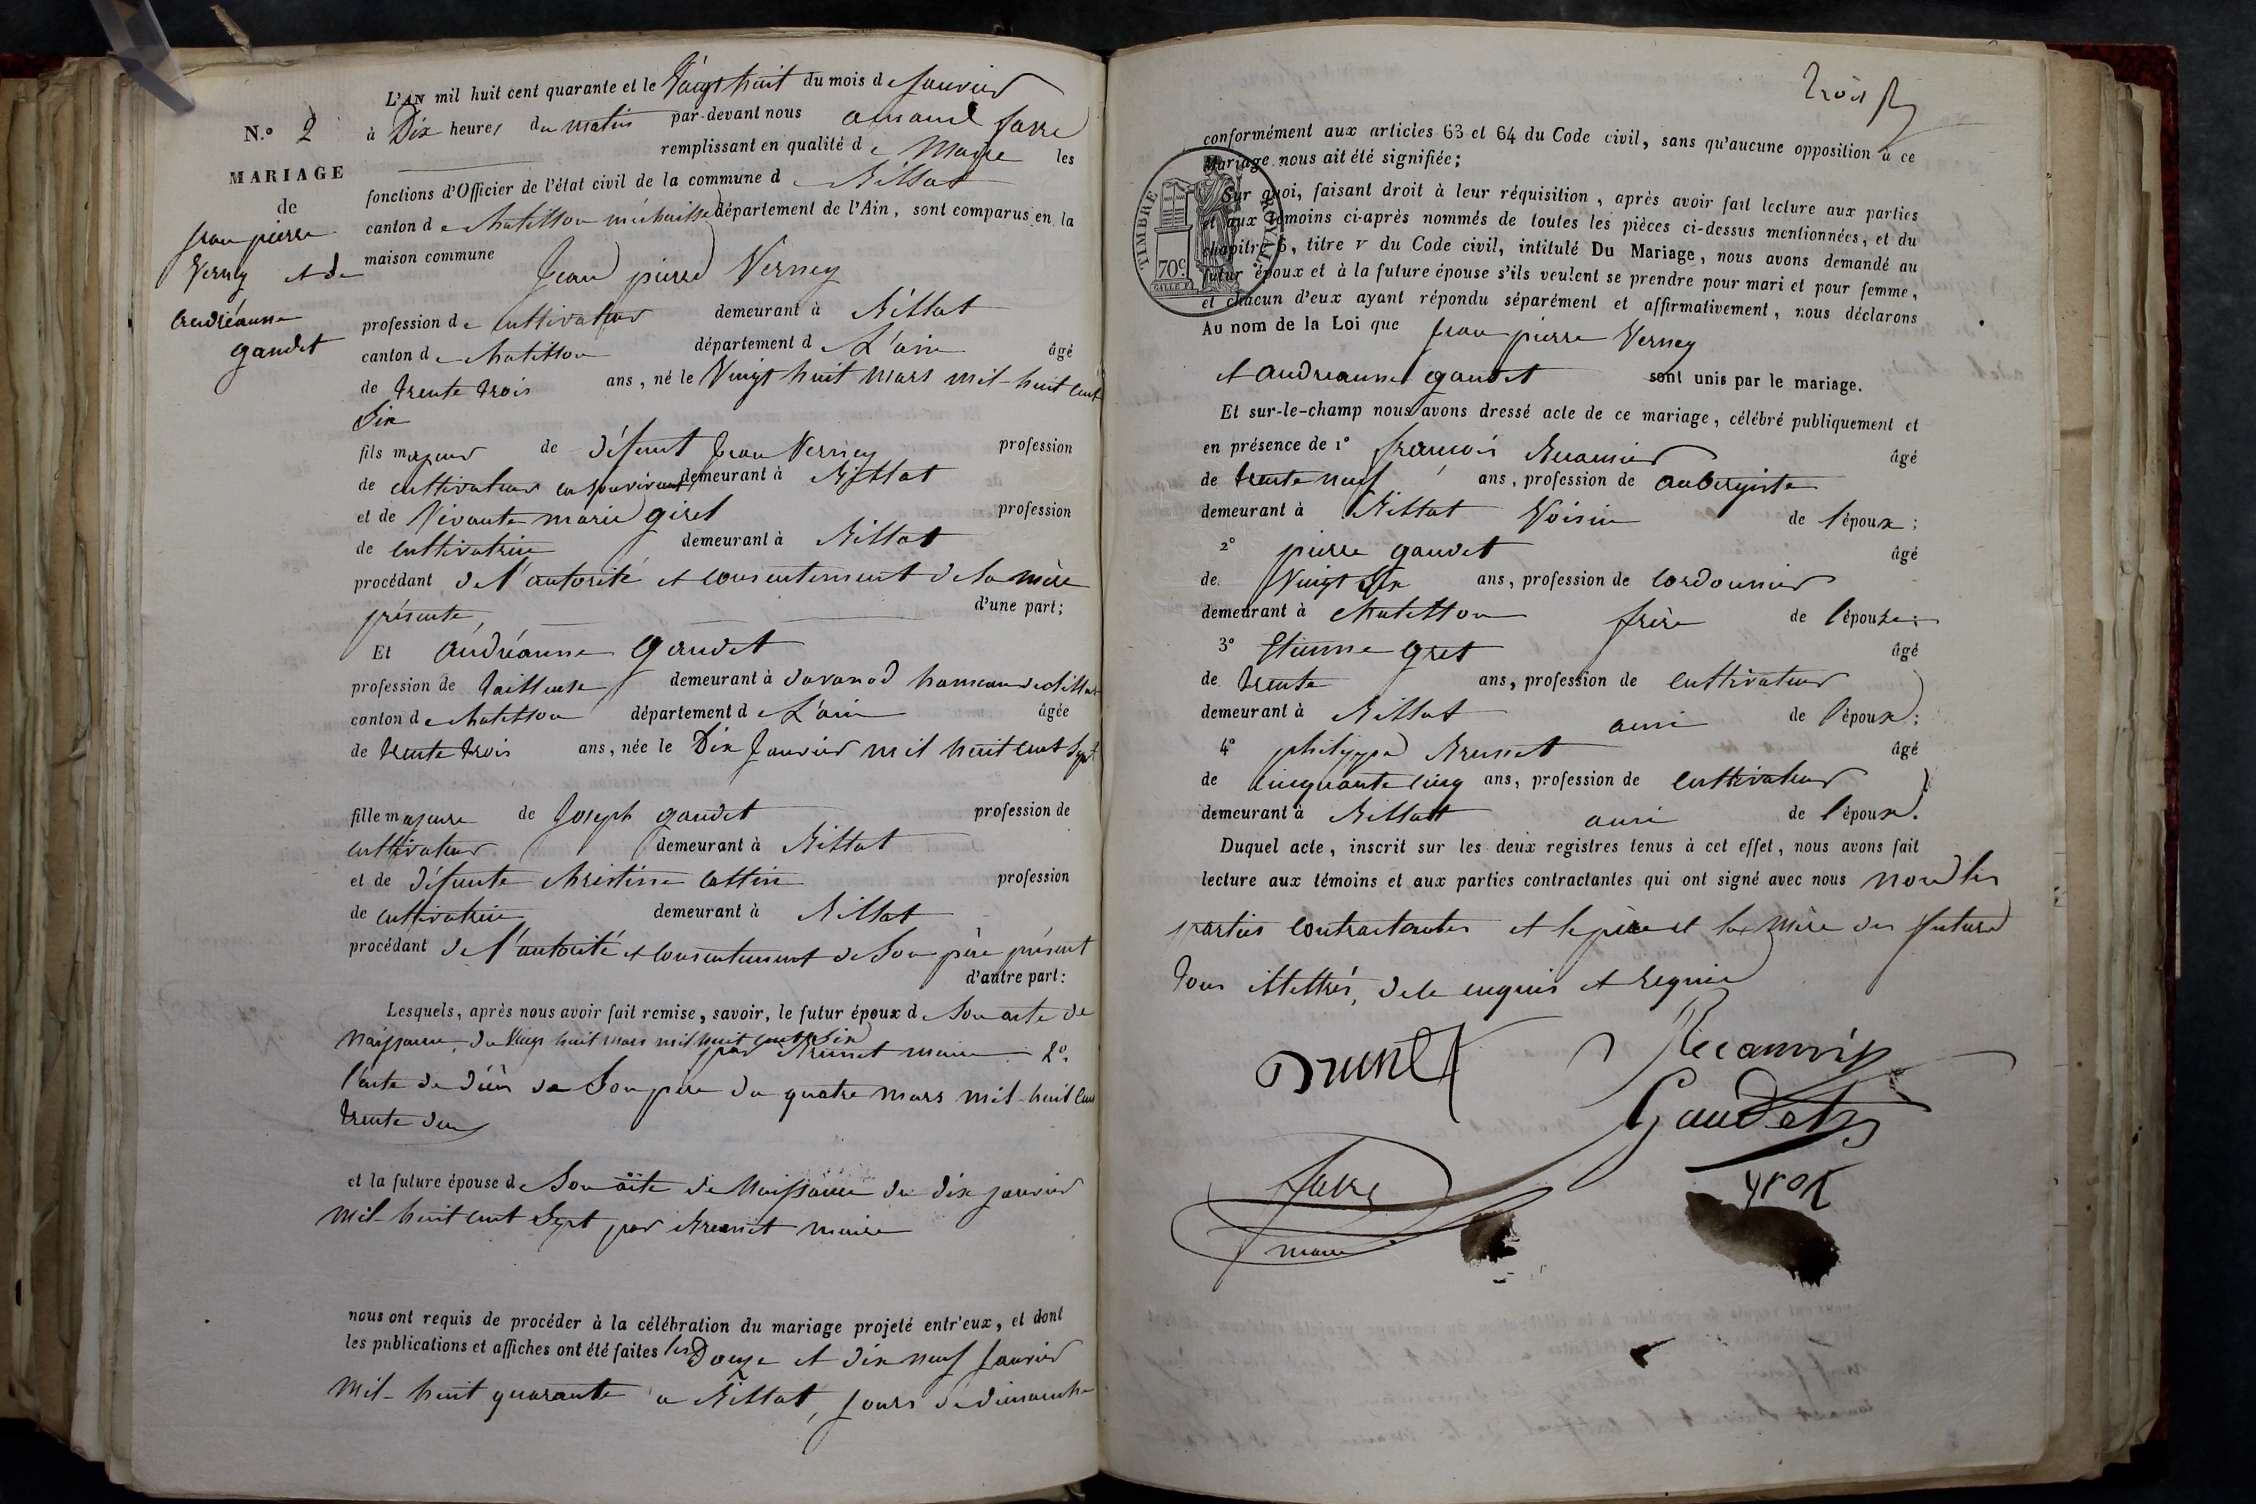 L'AN mil huit cent quarante et le Vingt huit du mois de Janvier
N.o 2
à Dix heures du matin par-devant nous amand favre
remplissant en qualité de Maire les
MARIAGE
fonctions d'Officier de l'état civil de la commune de Billiat
de
canton de Chatillon michaille département de l'Ain, sont comparus en la
jean pierre
maison commune Jean pierre Verney
Verney et de
andréanne
profession de Cultivateur demeurant à Billiat
gaudet
canton de Chatillon département de L'ain âgé
de trente trois ans, né le Vingt huit mars mil-huit cent
Six
fils majeur de défunt Jean Verney profession
de cultivateur en son vivant demeurant à Billiat
et de Vivante marie giret profession
de cultivatrice demeurant à Billiat
procédant de l'autorité et consentement de Sa mère
présente, d'une part;
Et andréanne Gaudet
profession de tailleuse demeurant à davanod hameau de billiat
canton de Chatillon département de L'ain âgée
de trente trois ans, née le Dix Janvier mil huit cent Sept
fille majeure de Joseph gaudet profession de
cultivateur demeurant à Billiat
et de défunte christine cottin profession
de cultivatrice demeurant à Billiat
procédant de l'autorité et consentement de Son père présent
d'autre part:
Lesquels, après nous avoir fait remise, savoir, le futur époux de Son acte de
Naissance, du Vingt huit mars mil huit cent Six
par Brunet maire 2o.
l'acte de décès de Son père du quatre mars mil-huit cent
trente deux
et la future épouse de Son acte de Naissance du dix janvier
Mil-huit cent Sept par Brunet maire
nous ont requis de procéder à la célébration du mariage projeté entr'eux, et dont
les publications et affiches ont été faites les Douze et dix neuf Janvier
Mil-huit quarante a Billiat, jours de dimanche
trois
conformément aux articles 63 et 64 du Code civil, sans qu'aucune opposition à ce
Mariage nous ait été signifiée;
TIMBRE ROYAL
70c
Sur quoi, faisant droit à leur réquisition, après avoir fait lecture aux parties
et aux témoins ci-après nommés de toutes les pièces ci-dessus mentionnées, et du
chapitre 6, titre v du Code civil, intitulé Du Mariage, nous avons demandé au
futur époux et à la future épouse s'ils veulent se prendre pour mari et pour femme,
et chacun d'eux ayant répondu séparément et affirmativement, nous déclarons
Au nom de la Loi que Jean pierre Verney
et andreanne gaudet sont unis par le mariage.
Et sur-le-champ nous avons dressé acte de ce mariage, célébré publiquement et
en présence de 1° françois Recamier âgé
de trente neuf ans, profession de aubergiste
demeurant à Billiat Voisin de l'époux;
2° pierre gaudet âgé
de Vingt Six ans, profession de cordonnier
demeurant à Chatillon frère de l'épouse;
3° Etienne gret âgé
de trente ans, profession de cultivateur
demeurant à Billiat ami de l'époux;
4° philippe Brunet âgé
de cinquante cinq ans, profession de cultivateur
demeurant à Billiat ami de l'époux.
Duquel acte, inscrit sur les deux registres tenus à cet effet, nous avons fait
lecture aux témoins et aux parties contractantes qui ont signé avec nous non les
parties contractantes et le père et la mère des futurs
tous illettrés, de ce enquis et requis
Brunet Recamier
Gaudet
favre
maire